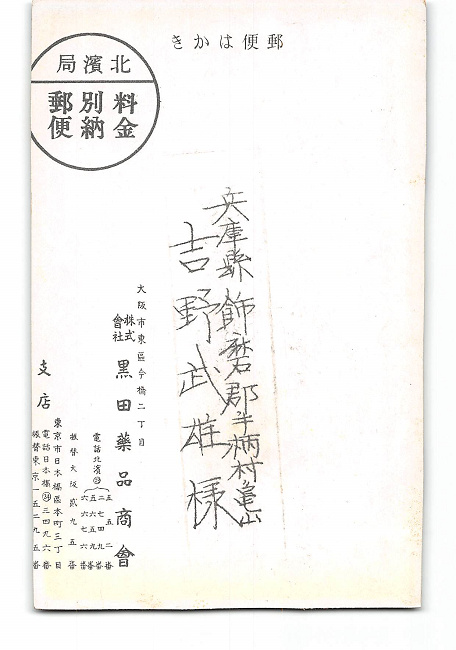 郵便はかき
北濱局
料金別納郵便
兵庫縣飾磨郡手柄村亀山
吉野武雄様
大阪市東區今橋二丁目
株式會社 黒田藥品商會
電話北濱
振替大阪貳九五番
支店
東京市日本橋區本町三丁目
電話日本橋㉔三四九六番
振替東京一五二九五番